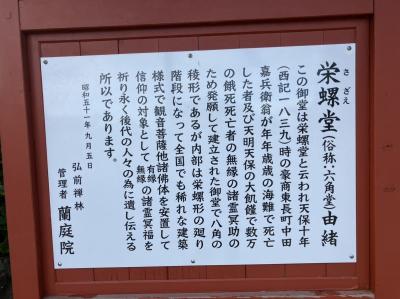 さざえ
栄螺堂(俗称·六角堂)由緒
この御堂は栄螺堂と云われ天保十年
(西記一八三九)時の豪商東長町中田
嘉兵衛翁が年年歳歳の海難で死亡
した者及び天明天保の大飢饉で数万
の餓死死亡者の無縁の諸霊冥助の
ため発願して建立された御堂で八角の
稜形であるが内部は栄螺形の廻り
階段になって全国でも稀れな建築
様式で観音菩薩他諸佛体を安置して
信仰の対象として有縁無縁の諸霊冥福を
祈り永く後代の人々の為に遺し伝える
所以であります。
昭和五十一年九月五日
弘前禅林
管理者 蘭庭院